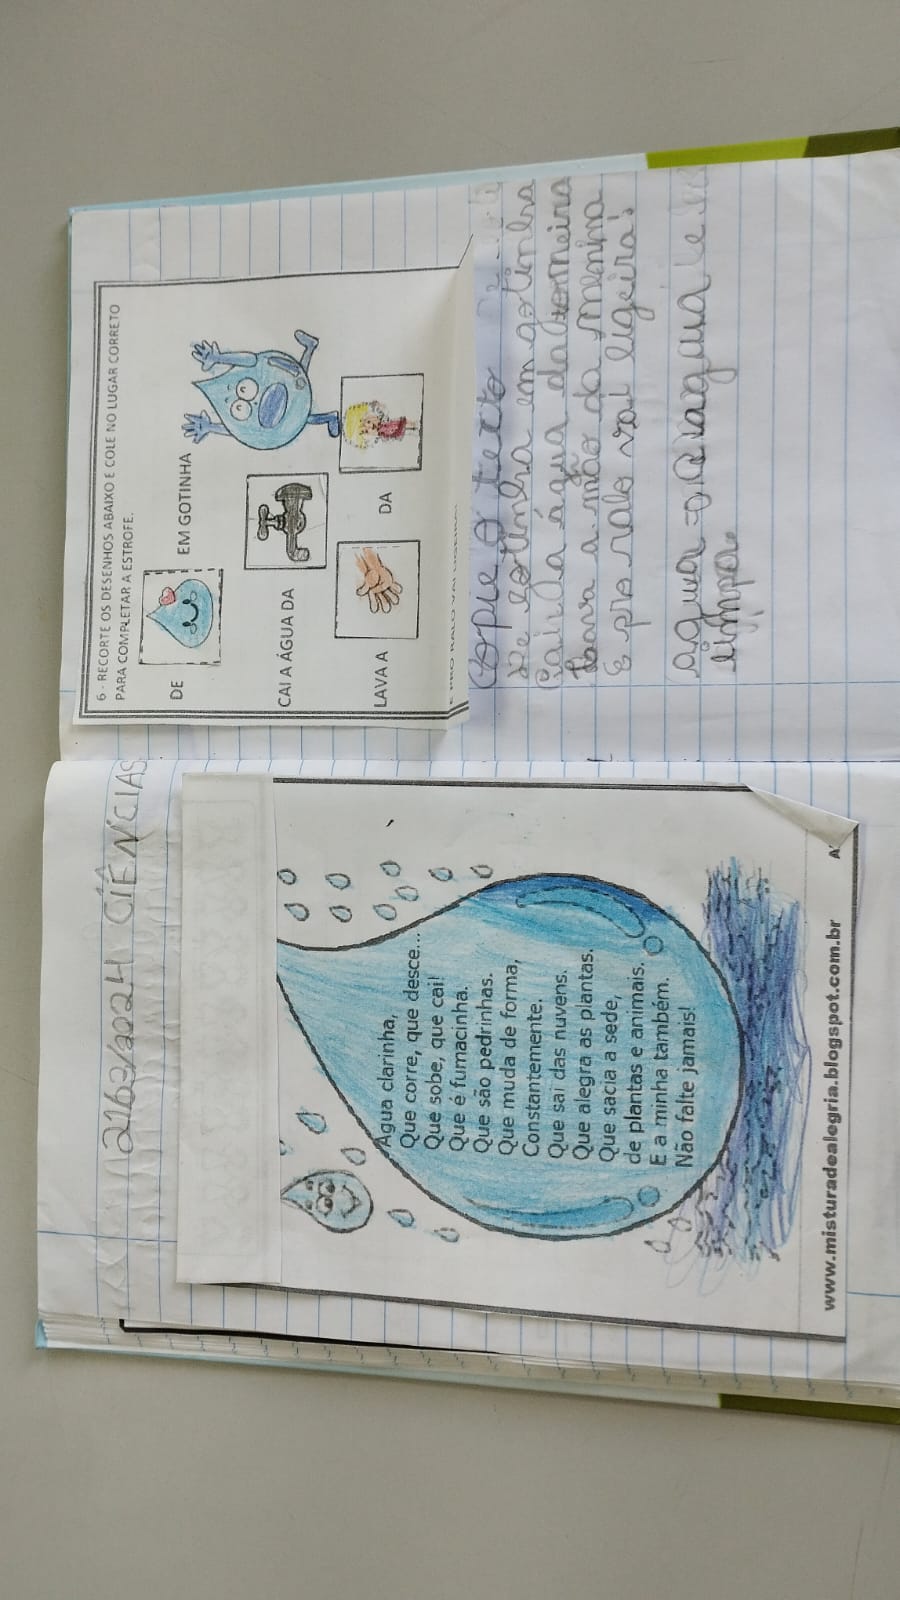 21/03/2024 CIÊNCIAS
Água clarinha,
Que corre, que desce...
Que sobe, que cai!
Que é fumacinha.
Que são pedrinhas.
Que muda de forma,
Constantemente.
Que sai das nuvens.
Que alegra as plantas.
Que sacia a sede,
de plantas e animais.
E a minha também.
Não falte jamais!
www.misturadealegria.blogspot.com.br
6 - RECORTE OS DESENHOS ABAIXO E COLE NO LUGAR CORRETO
PARA COMPLETAR A ESTROFE.
DE EM GOTINHA
CAI A ÁGUA DA
LAVA A DA
Copie o texto
De gotinha em gotinha
Cai a água da torneira
Lava a mão da menina
E pro ralo vai ligeira!
água → a água é
limpa.